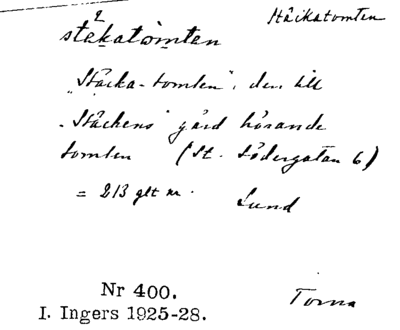 Ståckatomten
ståkatòmten
"Ståcka-tomten", den till
"Ståckens" gård hörande
tomten (St. Södergatan 6)
= 213 glt nr.
Lund
Nr 400.
I. Ingers 1925-28.
Torna